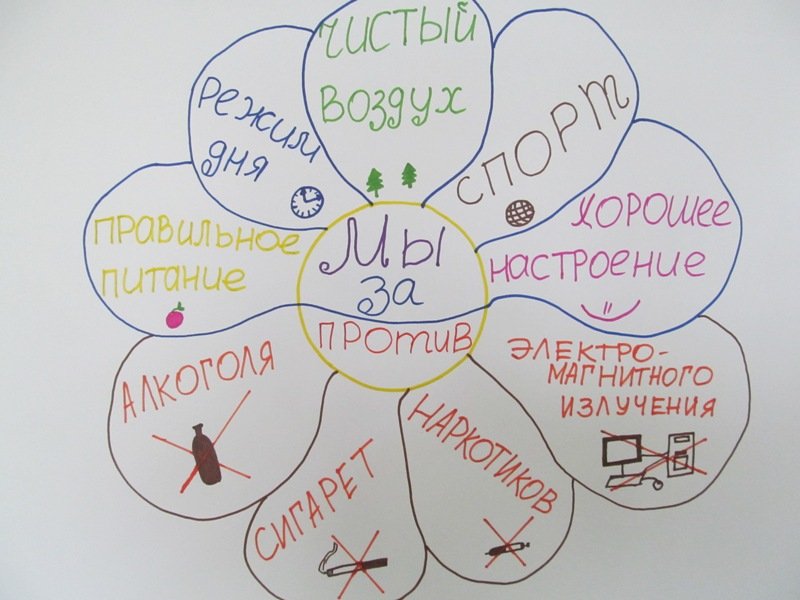 ЧИСТЫЙ
ВОЗДУХ
РЕЖИМ
ДНЯ
СПОРТ
ПРАВИЛЬНОЕ
ПИТАНИЕ
ХОРОШЕЕ
НАСТРОЕНИЕ
МЫ
ЗА
ПРОТИВ
АЛКОГОЛЯ
СИГАРЕТ
НАРКОТИКОВ
ЭЛЕКТРО-
МАГНИТНОГО
ИЗЛУЧЕНИЯ